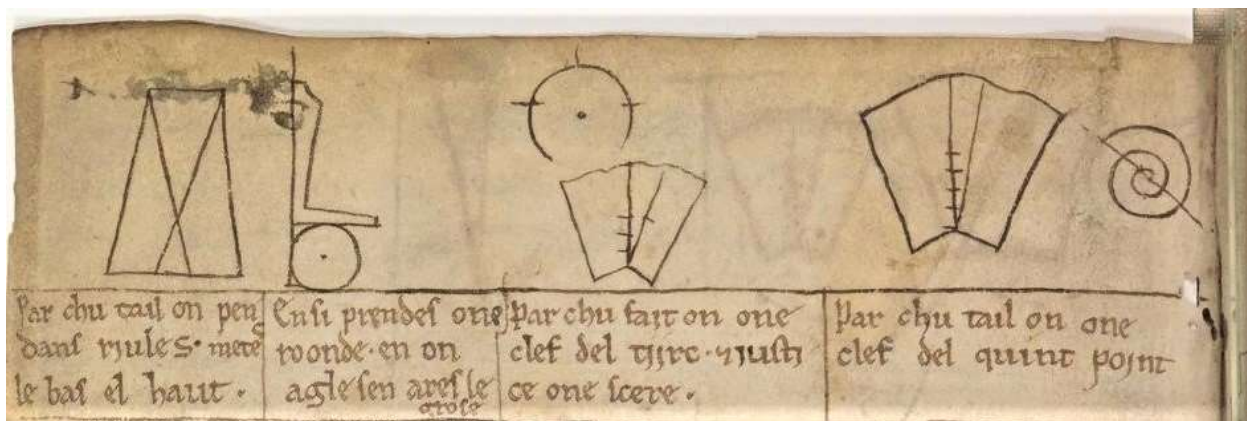 Par chu tail on pen
dans riules · mete
le bas el haut ·
Ensi prendes one
roonde · en on
agle sen ares le
grose
Par chu fait on one
clef del tiirc · & iusti
ce one scere ·
Par chu tail on one
clef del quint point